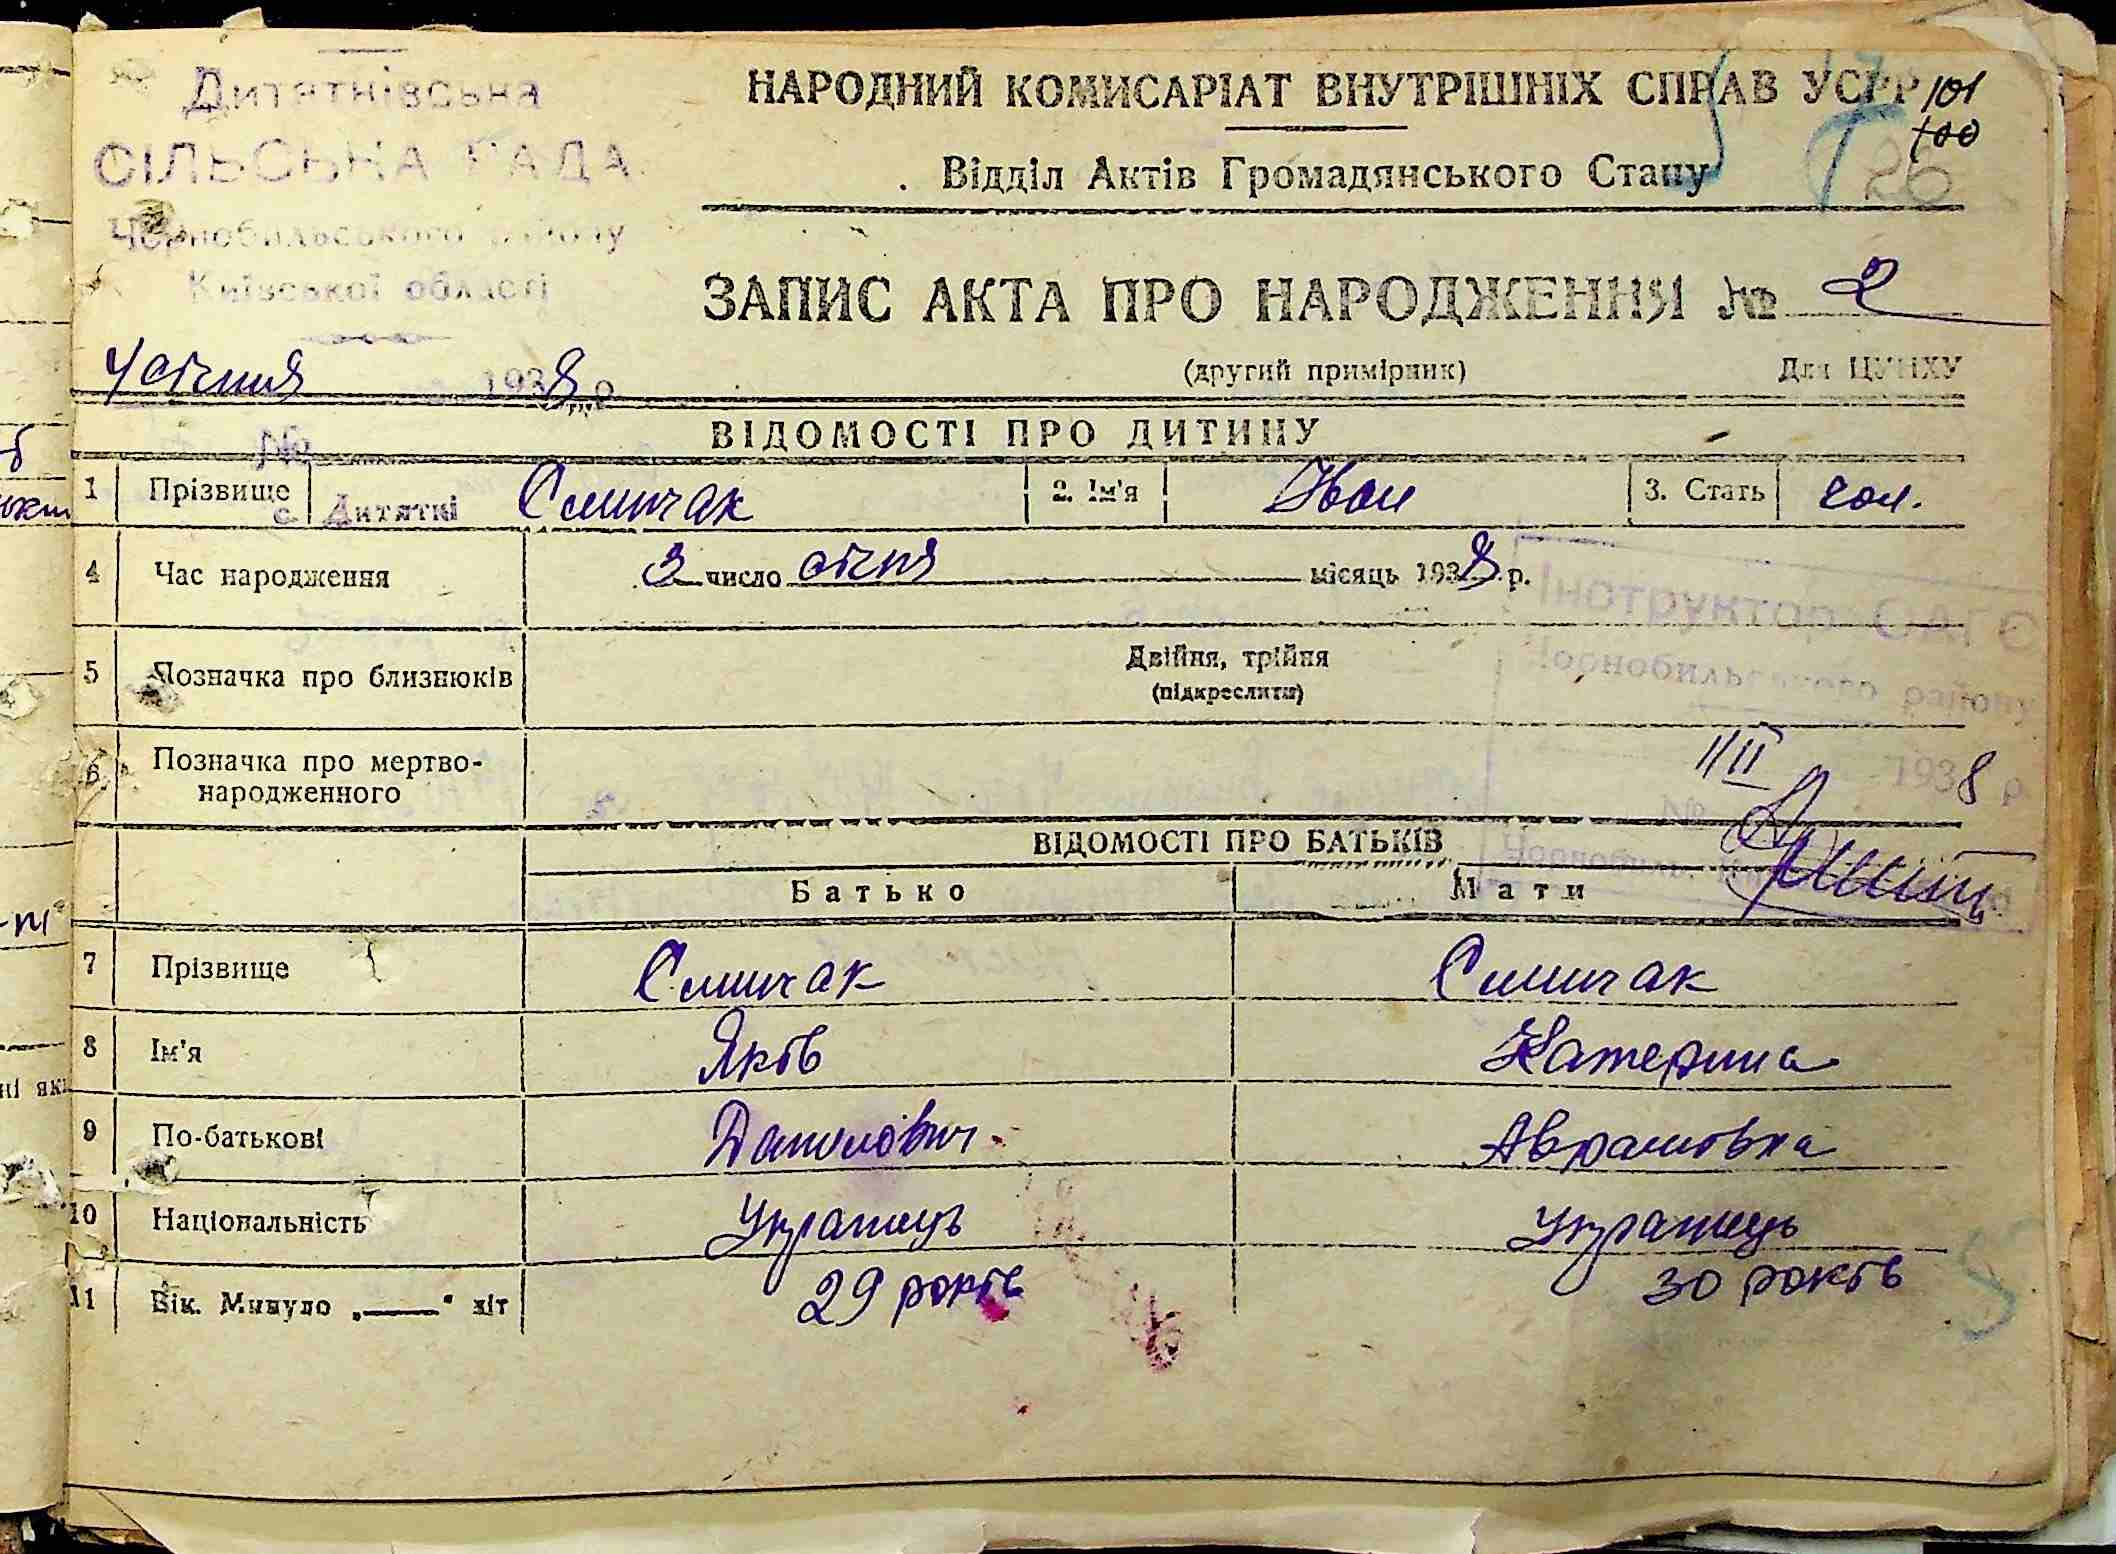 Дитятківська
СІЛЬСЬКА РАДА
Чорнобильського району
Київської області
НАРОДНИЙ КОМИСАРІАТ ВНУТРІШНІХ СПРАВ УСРР
101
100
26
Відділ Актів Громадянського Стану
ЗАПИС АКТА ПРО НАРОДЖЕННЯ № 2
4 січния 1938 р.
(другий примірник) Для ЦУНХУ
№
ВІДОМОСТІ ПРО ДИТИНУ
1 Прізвище Сличак 2. Ім'я Иван 3. Стать чол.
с. Дитяткі
4 Час народження 3 число січня місяць 1938 р.
Інструктор ОАГС
Чорнобильського району
5 Позначка про близнюків Двійня, трійня
(підкреслити)
6 Позначка про мертво-
народженного
1/II 1938 р.
№
ВІДОМОСТІ ПРО БАТЬКІВ
Батько Мати
7 Прізвище Сличак Сличак
8 Ім'я Яків Катерина
9 По-батькові Данилович Аврамовна
10 Національність Украінець Украінець
11 Вік. Минуло „——“ літ 29 років 30 років